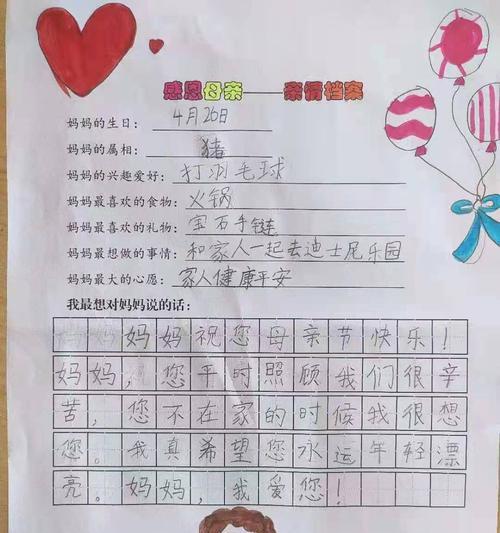 感恩母亲——亲情档案
妈妈的生日：4月26日
妈妈的属相：猪
妈妈的兴趣爱好：打羽毛球
妈妈最喜欢的食物：火锅
妈妈最喜欢的礼物：宝石手链
妈妈最想做的事情：和家人一起去迪士尼乐园
妈妈最大的心愿：家人健康平安
我最想对妈妈说的话：
妈妈妈妈祝您母亲节快乐！
妈妈，您平时照顾我们很辛
苦，您不在家的时候我很想
您。我真希望您水运年轻漂
亮。妈妈，我爱您！